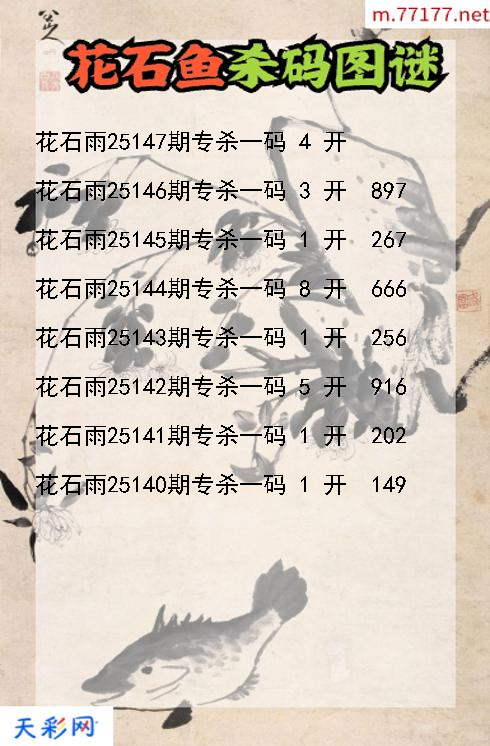 m.77177.net
八大山人
花石鱼杀码图谜
花石雨25147期专杀一码 4 开
花石雨25146期专杀一码 3 开 897
花石雨25145期专杀一码 1 开 267
花石雨25144期专杀一码 8 开 666
花石雨25143期专杀一码 1 开 256
花石雨25142期专杀一码 5 开 916
花石雨25141期专杀一码 1 开 202
花石雨25140期专杀一码 1 开 149
天彩网